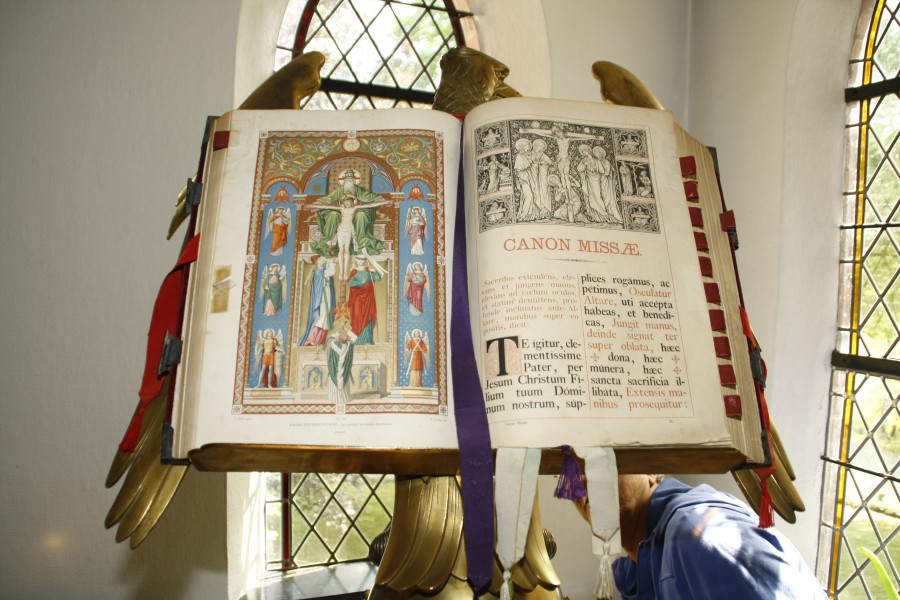 CANON MISSÆ.
Sacerdos extendens, ele-
vans et jungens manus,
elevans ad cœlum oculos,
et statim demittens, pro-
funde inclinatus ante Al-
tare, manibus super eo
positis, dicit:
TE igitur, cle-
mentissime
Pater, per
Jesum Christum Fi-
lium tuum Domi-
num nostrum, súp-
plices rogámus, ac
pétimus, Osculatur
Altare, uti accépta
hábeas, et benedí-
cas, Jungit manus,
deinde signat ter
super oblata, hæc
✠ dona, hæc ✠
múnera, hæc ✠
sancta sacrifícia il-
libáta, Extensis ma-
nibus prosequitur: